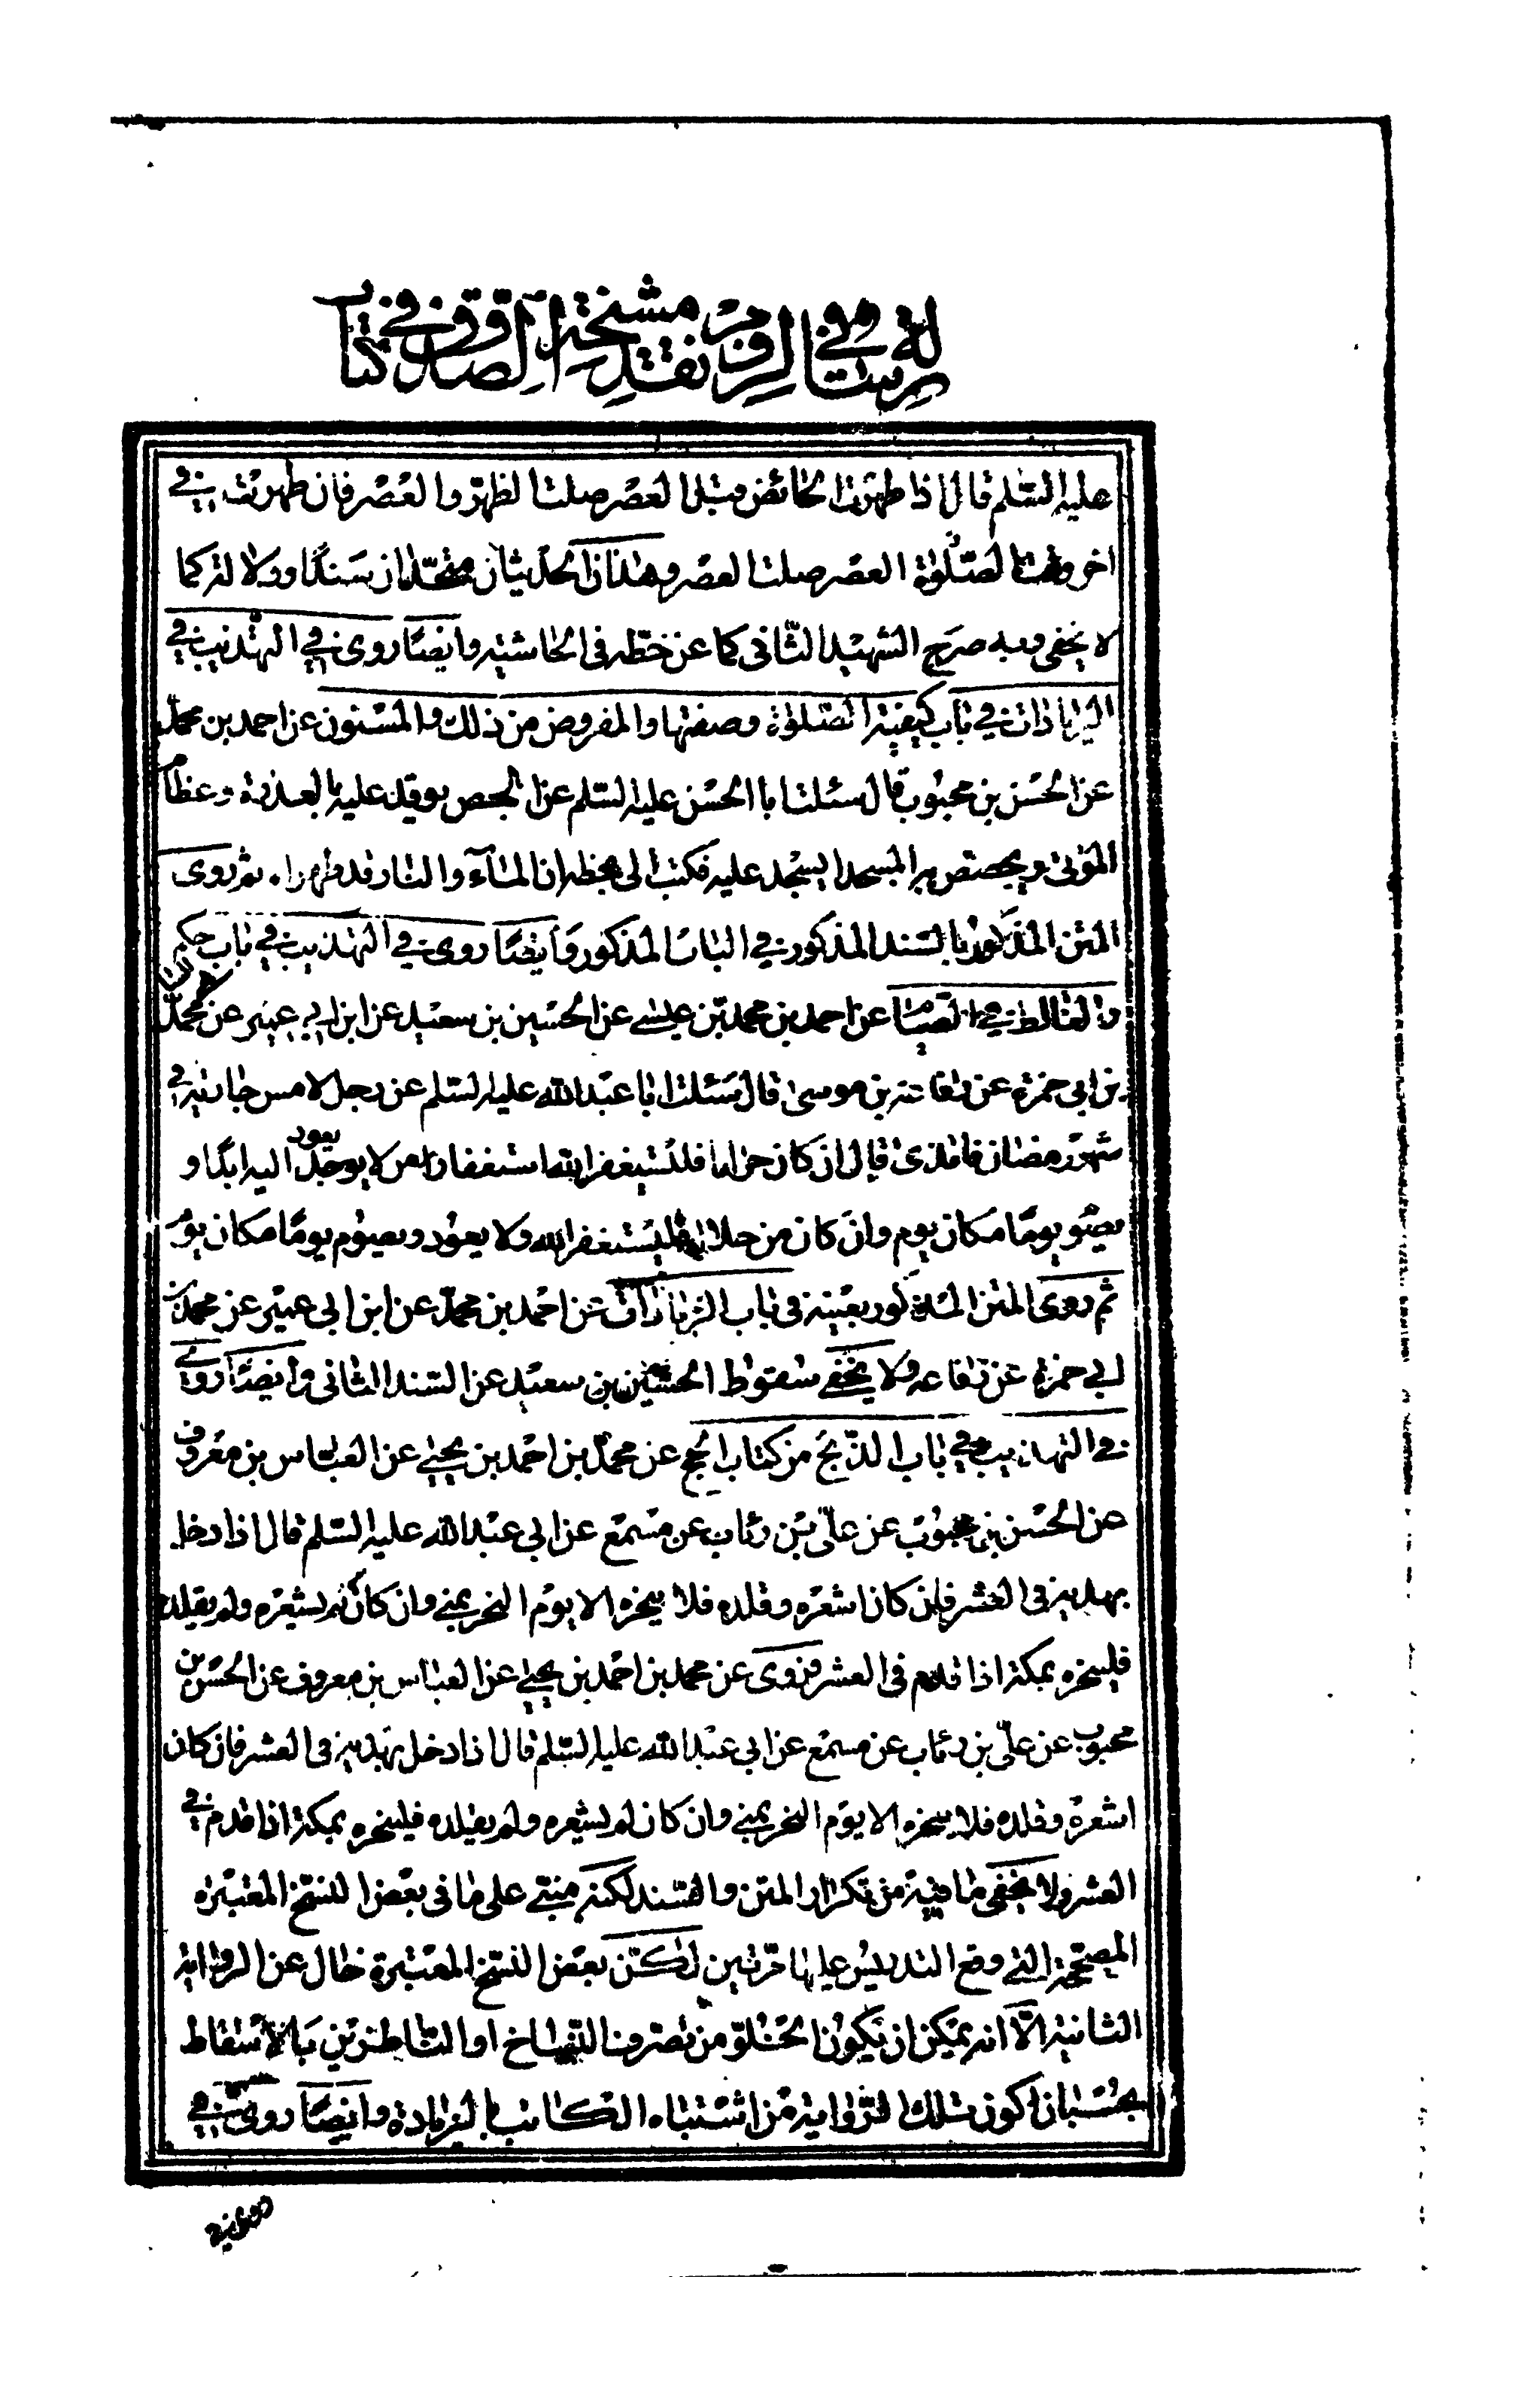 رسالة في نقد مشيخة الصدوق في كتاب
عليه السّلم قال اذا طهرت الحائض قبل العصر صلت الظهر والعصر فان طهرت في
اخر وقت الصّلوة العصر صلت العصر وهذان الحديثان متحدان سندًا ودلالة كما
لا يخفى وبه صرح الشهيد الثّانى كما عن خطّه فى الحاشيه وايضًا روى في التهذيب في
الزيادات في باب كيفية الصّلوة وصفتها والمفروض من ذلك والمسنون عن احمد بن محمّد
عن الحسن بن محبوب قال سئلت ابا الحسن عليه السّلم عن الجص يوقد عليه بالعذرة وعظام
الموتى ويجصص به المسجد ايسجد عليه فكتب الى بخطه ان المآء والنار قد طهراه ثم روى
المتن المذكور بالسند المذكور في الباب المذكور وايضًا روى في التهذيب في باب حكم
والغالط في الصيام عن احمد بن محمد بن عيسى عن الحسين بن سعيد عن ابن ابي عمير عن محمّد
بن ابى حمزة عن رفاعة بن موسى قال سئلت ابا عبد الله عليه السّلم عن رجل لامس جارية في
شهر رمضان فامذى قال ان كان حراما فليستغفر الله استغفار من لا يعود اليه ابدًا و
يصوم يومًا مكان يوم وان كان من حلال فليستغفر الله ولا يعود ويصوم يومًا مكان يوم
ثم روى المتن المذكور بعينه فى باب الزيادات عن احمد بن محمّد عن ابن ابى عمير عن محمد بن
ابي حمزة عن رفاعه ولا يخفى سقوط الحسين بن سعيد عن السّند الثانى وايضًا روى
في التهذيب في باب الذّبح من كتاب الحج عن محمّد بن احمد بن يحيى عن العبّاس بن معروف
عن الحسن بن محبوب عن علىّ بن رئاب عن مسمع عن ابى عبد الله عليه السّلم قال اذا دخل
بهديه فى العشر فان كان اشعره وقلده فلا ينحره الا يوم النحر بمنى وان كان لم يشعره ولم يقلده
فلينحره بمكة اذا قدم فى العشر وروى عن محمد بن احمد بن يحيى عن العباس بن معروف عن الحسن بن
محبوب عن علىّ بن رئاب عن مسمع عن ابى عبد الله عليه السّلم قال اذا دخل بهديه فى العشر فان كان
اشعره وقلده فلا ينحره الا يوم النحر بمنى وان كان لم يشعره ولم يقلده فلينحره بمكة اذا قدم في
العشر ولا يخفى ما فيه من تكرار المتن والسّند لكنه مبنى على ما فى بعض النسخ المعتبره
المصححة التى وقع التدريس عليها مرّتين لكن بعض النسخ المعتبرة خال عن الرواية
الثانية الّا انه يمكن ان يكون الخلوّ من تصرف النّساخ او النّاظرين بالاسقاط
بحسبان كون تلك الرّواية من اشتباه الكاتب بالزيادة وايضًا روى في